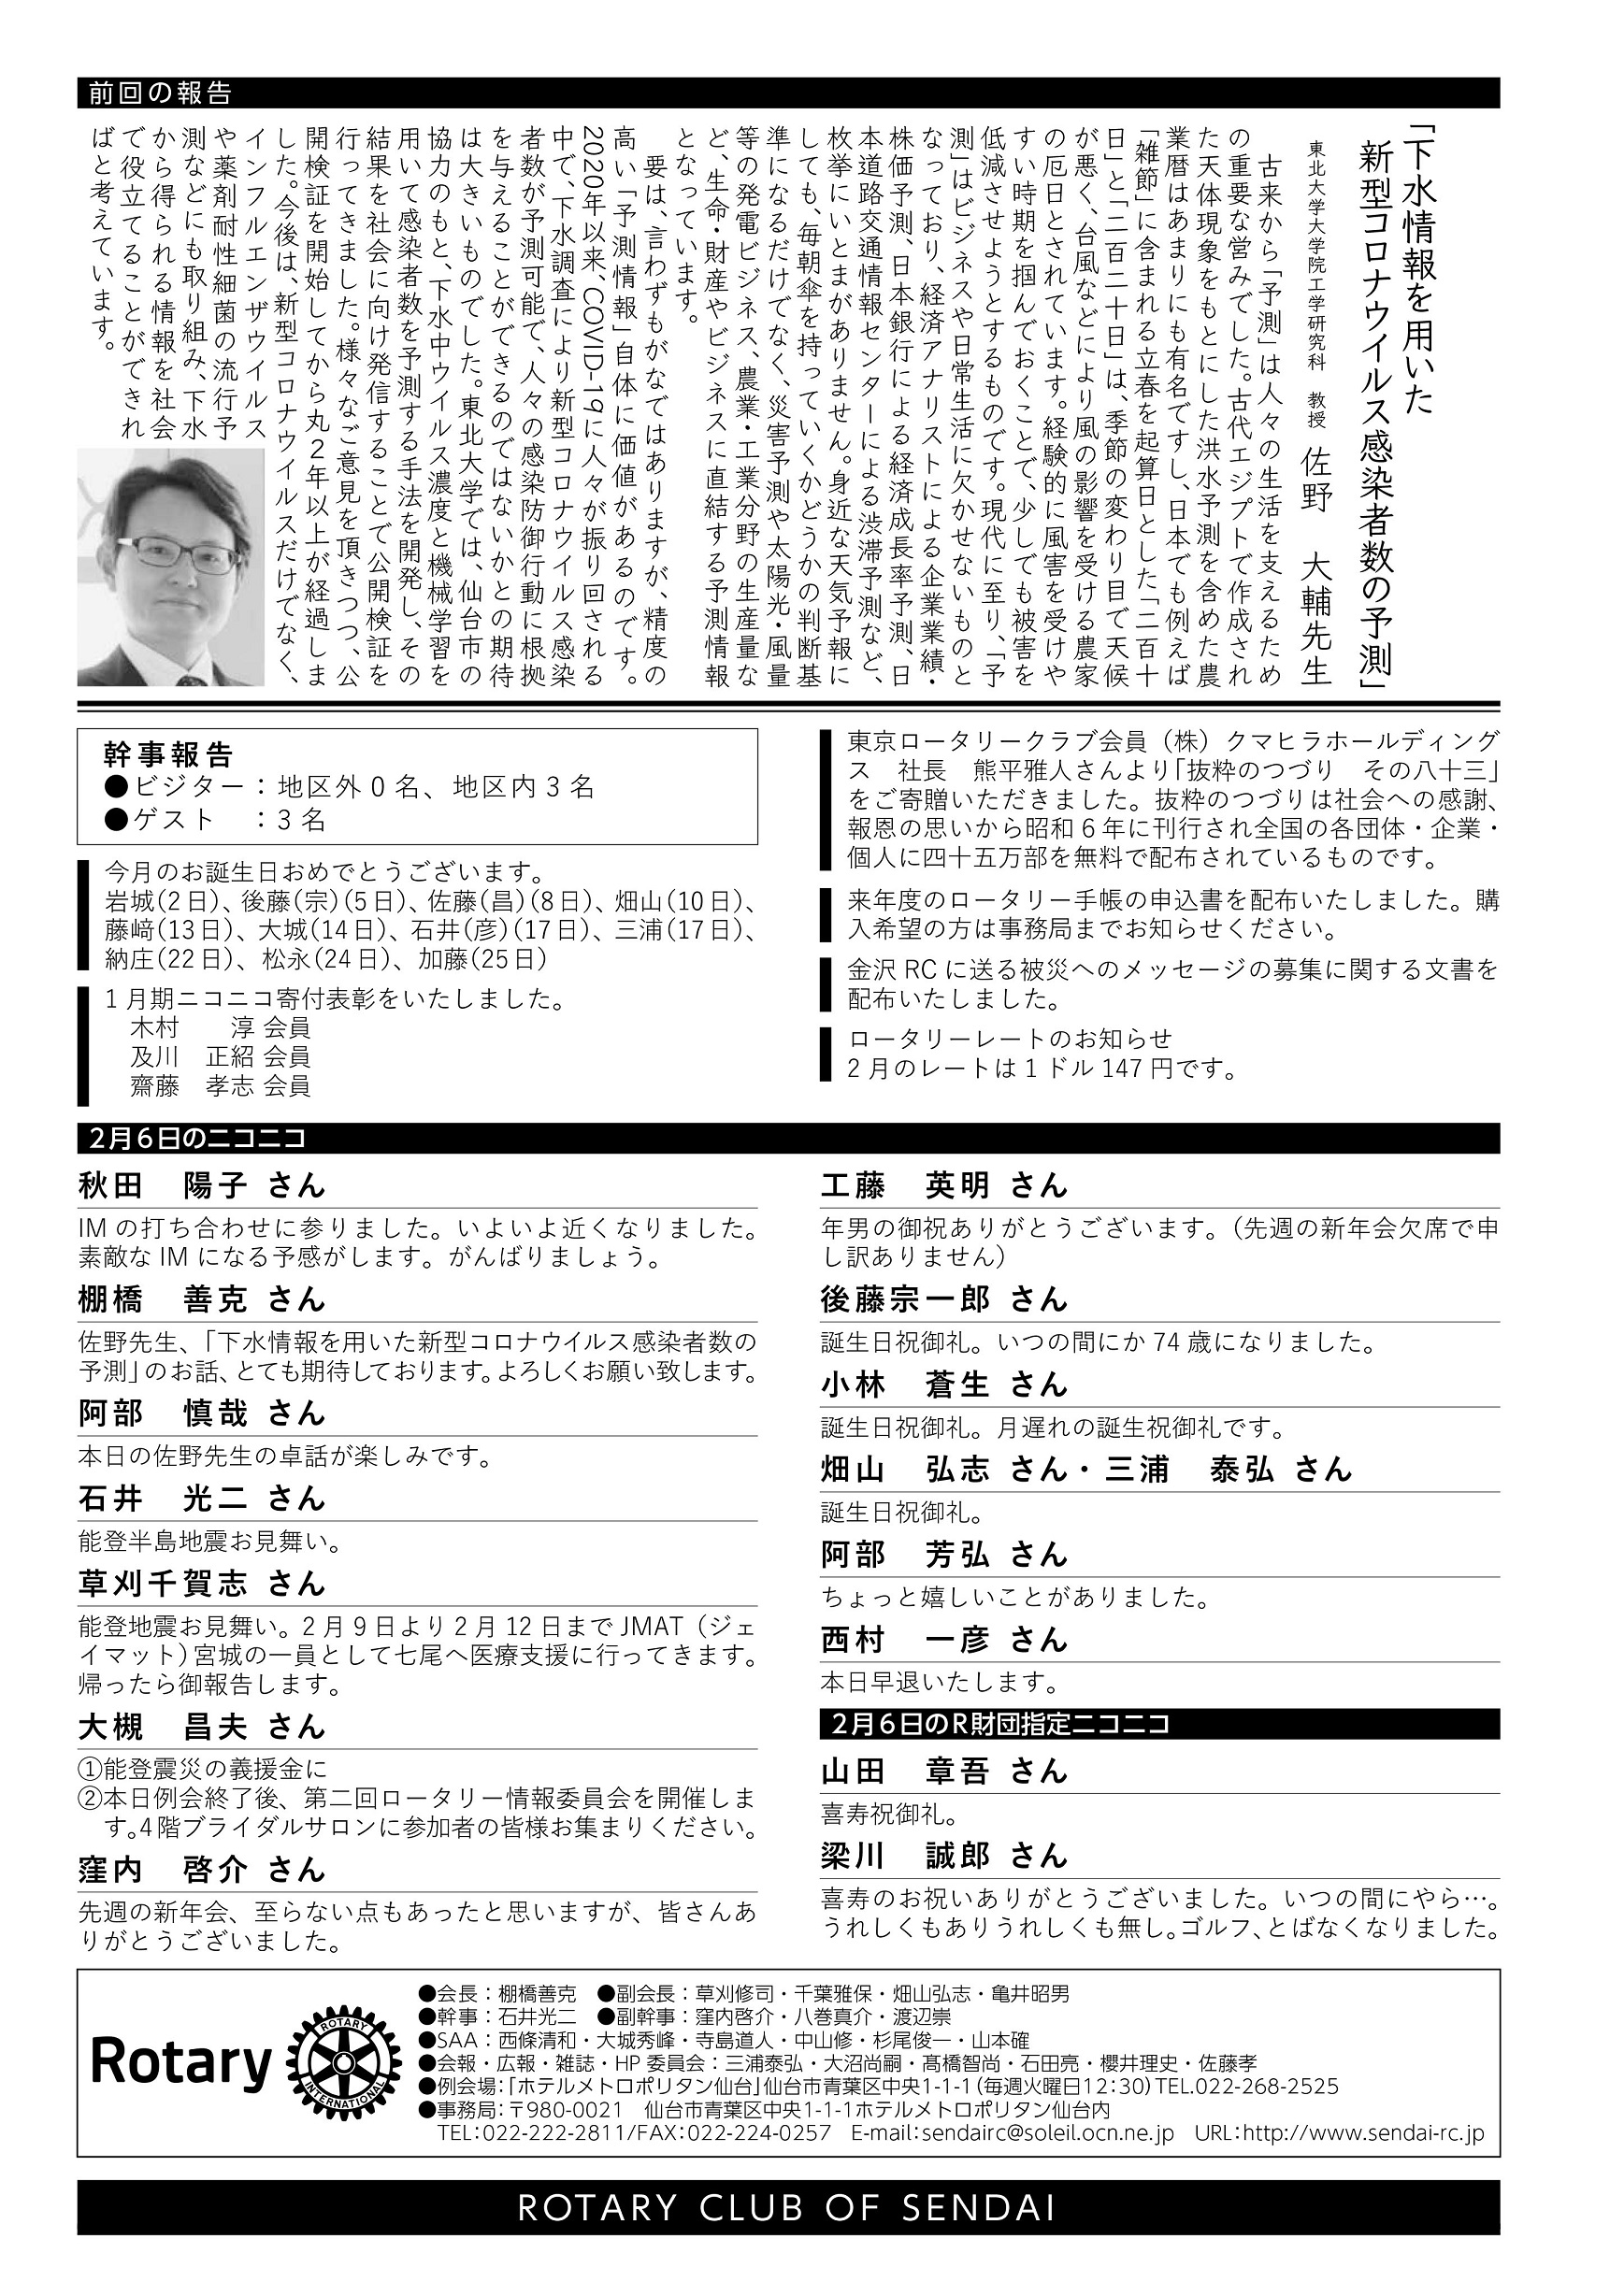 前回の報告
「下水情報を用いた
新型コロナウイルス感染者数の予測」
東北大学大学院工学研究科　教授　佐野　大輔先生
古来から「予測」は人々の生活を支えるため
の重要な営みでした。古代エジプトで作成され
た天体現象をもとにした洪水予測を含めた農
業暦はあまりにも有名ですし、日本でも例えば
「雑節」に含まれる立春を起算日とした「二百十
日」と「二百二十日」は、季節の変わり目で天候
が悪く、台風などにより風の影響を受ける農家
の厄日とされています。経験的に風害を受けや
すい時期を掴んでおくことで、少しでも被害を
低減させようとするものです。現代に至り、「予
測」はビジネスや日常生活に欠かせないものと
なっており、経済アナリストによる企業業績・
株価予測、日本銀行による経済成長率予測、日
本道路交通情報センターによる渋滞予測など、
枚挙にいとまがありません。身近な天気予報に
しても、毎朝傘を持っていくかどうかの判断基
準になるだけでなく、災害予測や太陽光・風量
等の発電ビジネス、農業・工業分野の生産量な
ど、生命・財産やビジネスに直結する予測情報
となっています。
要は、言わずもがなではありますが、精度の
高い「予測情報」自体に価値があるのです。
2020年以来、COVID-19に人々が振り回される
中で、下水調査により新型コロナウイルス感染
者数が予測可能で、人々の感染防御行動に根拠
を与えることができるのではないかとの期待
は大きいものでした。東北大学では、仙台市の
協力のもと、下水中ウイルス濃度と機械学習を
用いて感染者数を予測する手法を開発し、その
結果を社会に向け発信することで公開検証を
行ってきました。様々なご意見を頂きつつ、公
開検証を開始してから丸２年以上が経過しま
した。今後は、新型コロナウイルスだけでなく、
インフルエンザウイルス
や薬剤耐性細菌の流行予
測などにも取り組み、下水
から得られる情報を社会
で役立てることができれ
ばと考えています。
幹事報告
●ビジター：地区外 0 名、地区内 3 名
●ゲスト　：3 名
今月のお誕生日おめでとうございます。
岩城(2日)、後藤(宗)(5日)、佐藤(昌)(8日)、畑山(10日)、
藤﨑(13日)、大城(14日)、石井(彦)(17日)、三浦(17日)、
納庄(22日)、松永(24日)、加藤(25日)
1 月期ニコニコ寄付表彰をいたしました。
木村　　淳 会員
及川　正紹 会員
齋藤　孝志 会員
東京ロータリークラブ会員（株）クマヒラホールディング
ス　社長　熊平雅人さんより「抜粋のつづり　その八十三」
をご寄贈いただきました。抜粋のつづりは社会への感謝、
報恩の思いから昭和 6 年に刊行され全国の各団体・企業・
個人に四十五万部を無料で配布されているものです。
来年度のロータリー手帳の申込書を配布いたしました。購
入希望の方は事務局までお知らせください。
金沢 RC に送る被災へのメッセージの募集に関する文書を
配布いたしました。
ロータリーレートのお知らせ
2 月のレートは 1 ドル 147 円です。
2月6日のニコニコ
秋田　陽子 さん
IM の打ち合わせに参りました。いよいよ近くなりました。
素敵な IM になる予感がします。がんばりましょう。
棚橋　善克 さん
佐野先生、「下水情報を用いた新型コロナウイルス感染者数の
予測」のお話、とても期待しております。よろしくお願い致します。
阿部　慎哉 さん
本日の佐野先生の卓話が楽しみです。
石井　光二 さん
能登半島地震お見舞い。
草刈千賀志 さん
能登地震お見舞い。2 月 9 日より 2 月 12 日まで JMAT（ジェ
イマット）宮城の一員として七尾へ医療支援に行ってきます。
帰ったら御報告します。
大槻　昌夫 さん
①能登震災の義援金に
②本日例会終了後、第二回ロータリー情報委員会を開催しま
す。4階ブライダルサロンに参加者の皆様お集まりください。
窪内　啓介 さん
先週の新年会、至らない点もあったと思いますが、皆さんあ
りがとうございました。
工藤　英明 さん
年男の御祝ありがとうございます。（先週の新年会欠席で申
し訳ありません）
後藤宗一郎 さん
誕生日祝御礼。いつの間にか 74 歳になりました。
小林　蒼生 さん
誕生日祝御礼。月遅れの誕生祝御礼です。
畑山　弘志 さん・三浦　泰弘 さん
誕生日祝御礼。
阿部　芳弘 さん
ちょっと嬉しいことがありました。
西村　一彦 さん
本日早退いたします。
2月6日のR財団指定ニコニコ
山田　章吾 さん
喜寿祝御礼。
梁川　誠郎 さん
喜寿のお祝いありがとうございました。いつの間にやら…。
うれしくもありうれしくも無し。ゴルフ、とばなくなりました。
Rotary
ROTARY
INTERNATIONAL
●会長：棚橋善克　●副会長：草刈修司・千葉雅保・畑山弘志・亀井昭男
●幹事：石井光二　●副幹事：窪内啓介・八巻真介・渡辺崇
●SAA：西條清和・大城秀峰・寺島道人・中山修・杉尾俊一・山本確
●会報・広報・雑誌・HP 委員会：三浦泰弘・大沼尚嗣・髙橋智尚・石田亮・櫻井理史・佐藤孝
●例会場：「ホテルメトロポリタン仙台」仙台市青葉区中央1-1-1（毎週火曜日12：30）TEL.022-268-2525
●事務局：〒980-0021　仙台市青葉区中央1-1-1ホテルメトロポリタン仙台内
TEL：022-222-2811/FAX：022-224-0257　E-mail：sendairc@soleil.ocn.ne.jp　URL：http://www.sendai-rc.jp
ROTARY CLUB OF SENDAI